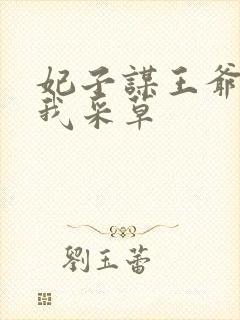 妃子謀王爺
我采草
劉玉蕾